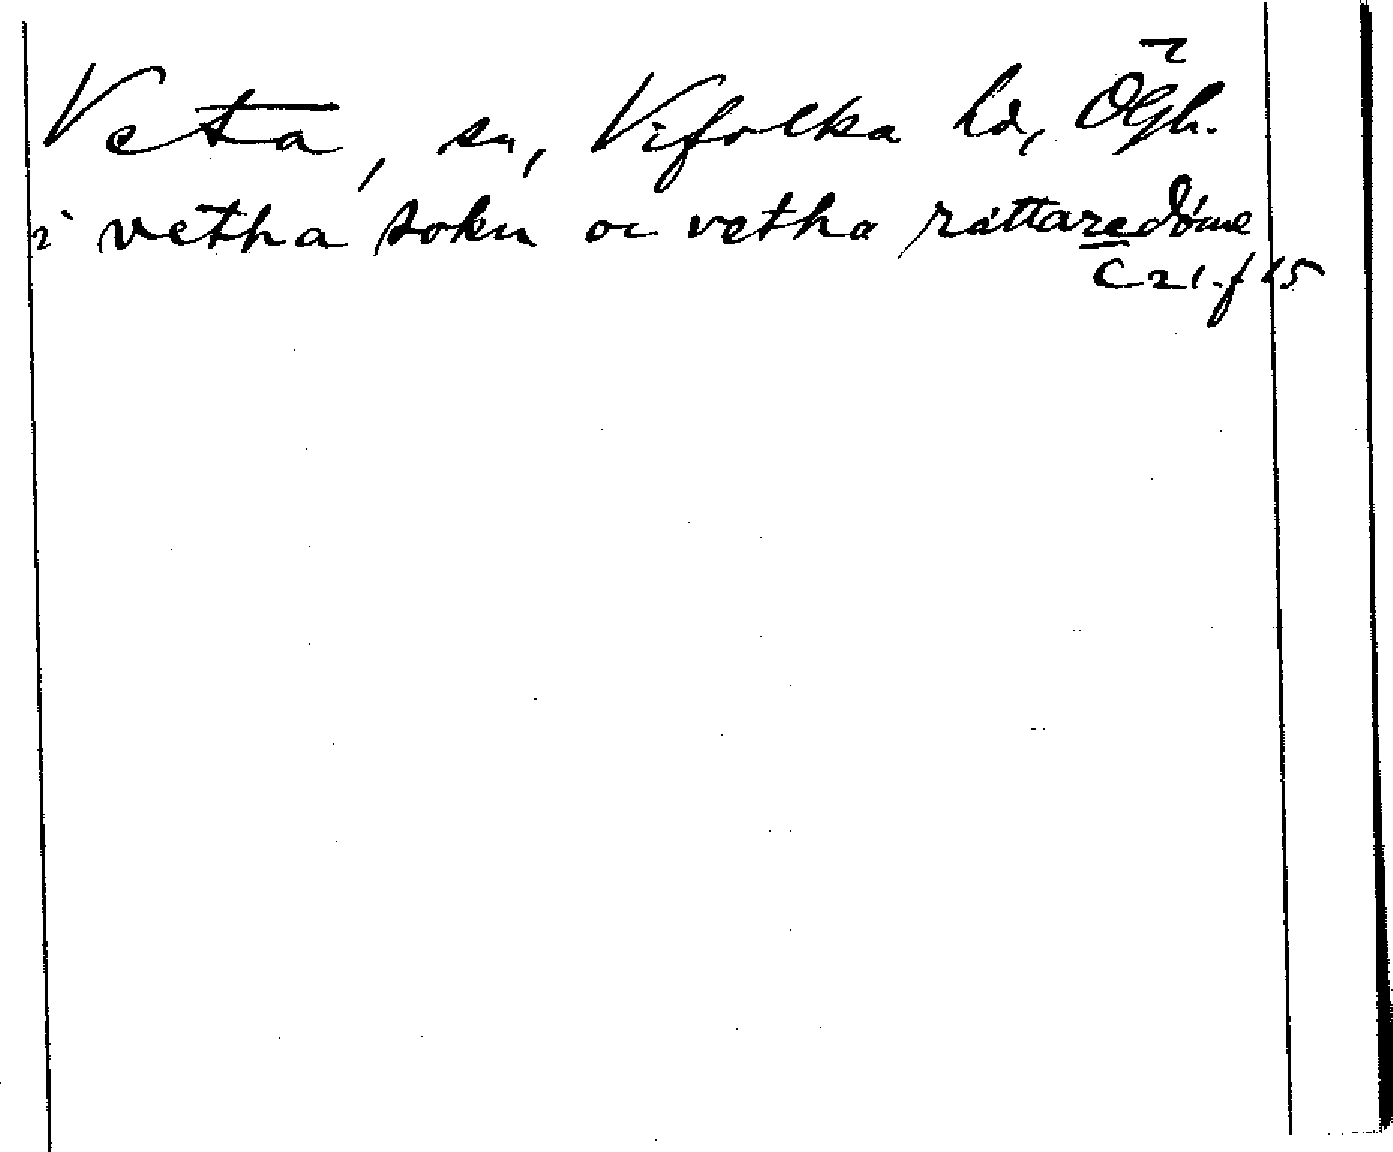 Vetta, sn, Vifolka hd, Ögl.
i vetha sokn oc vetha rättaredöme
C 21. f 15